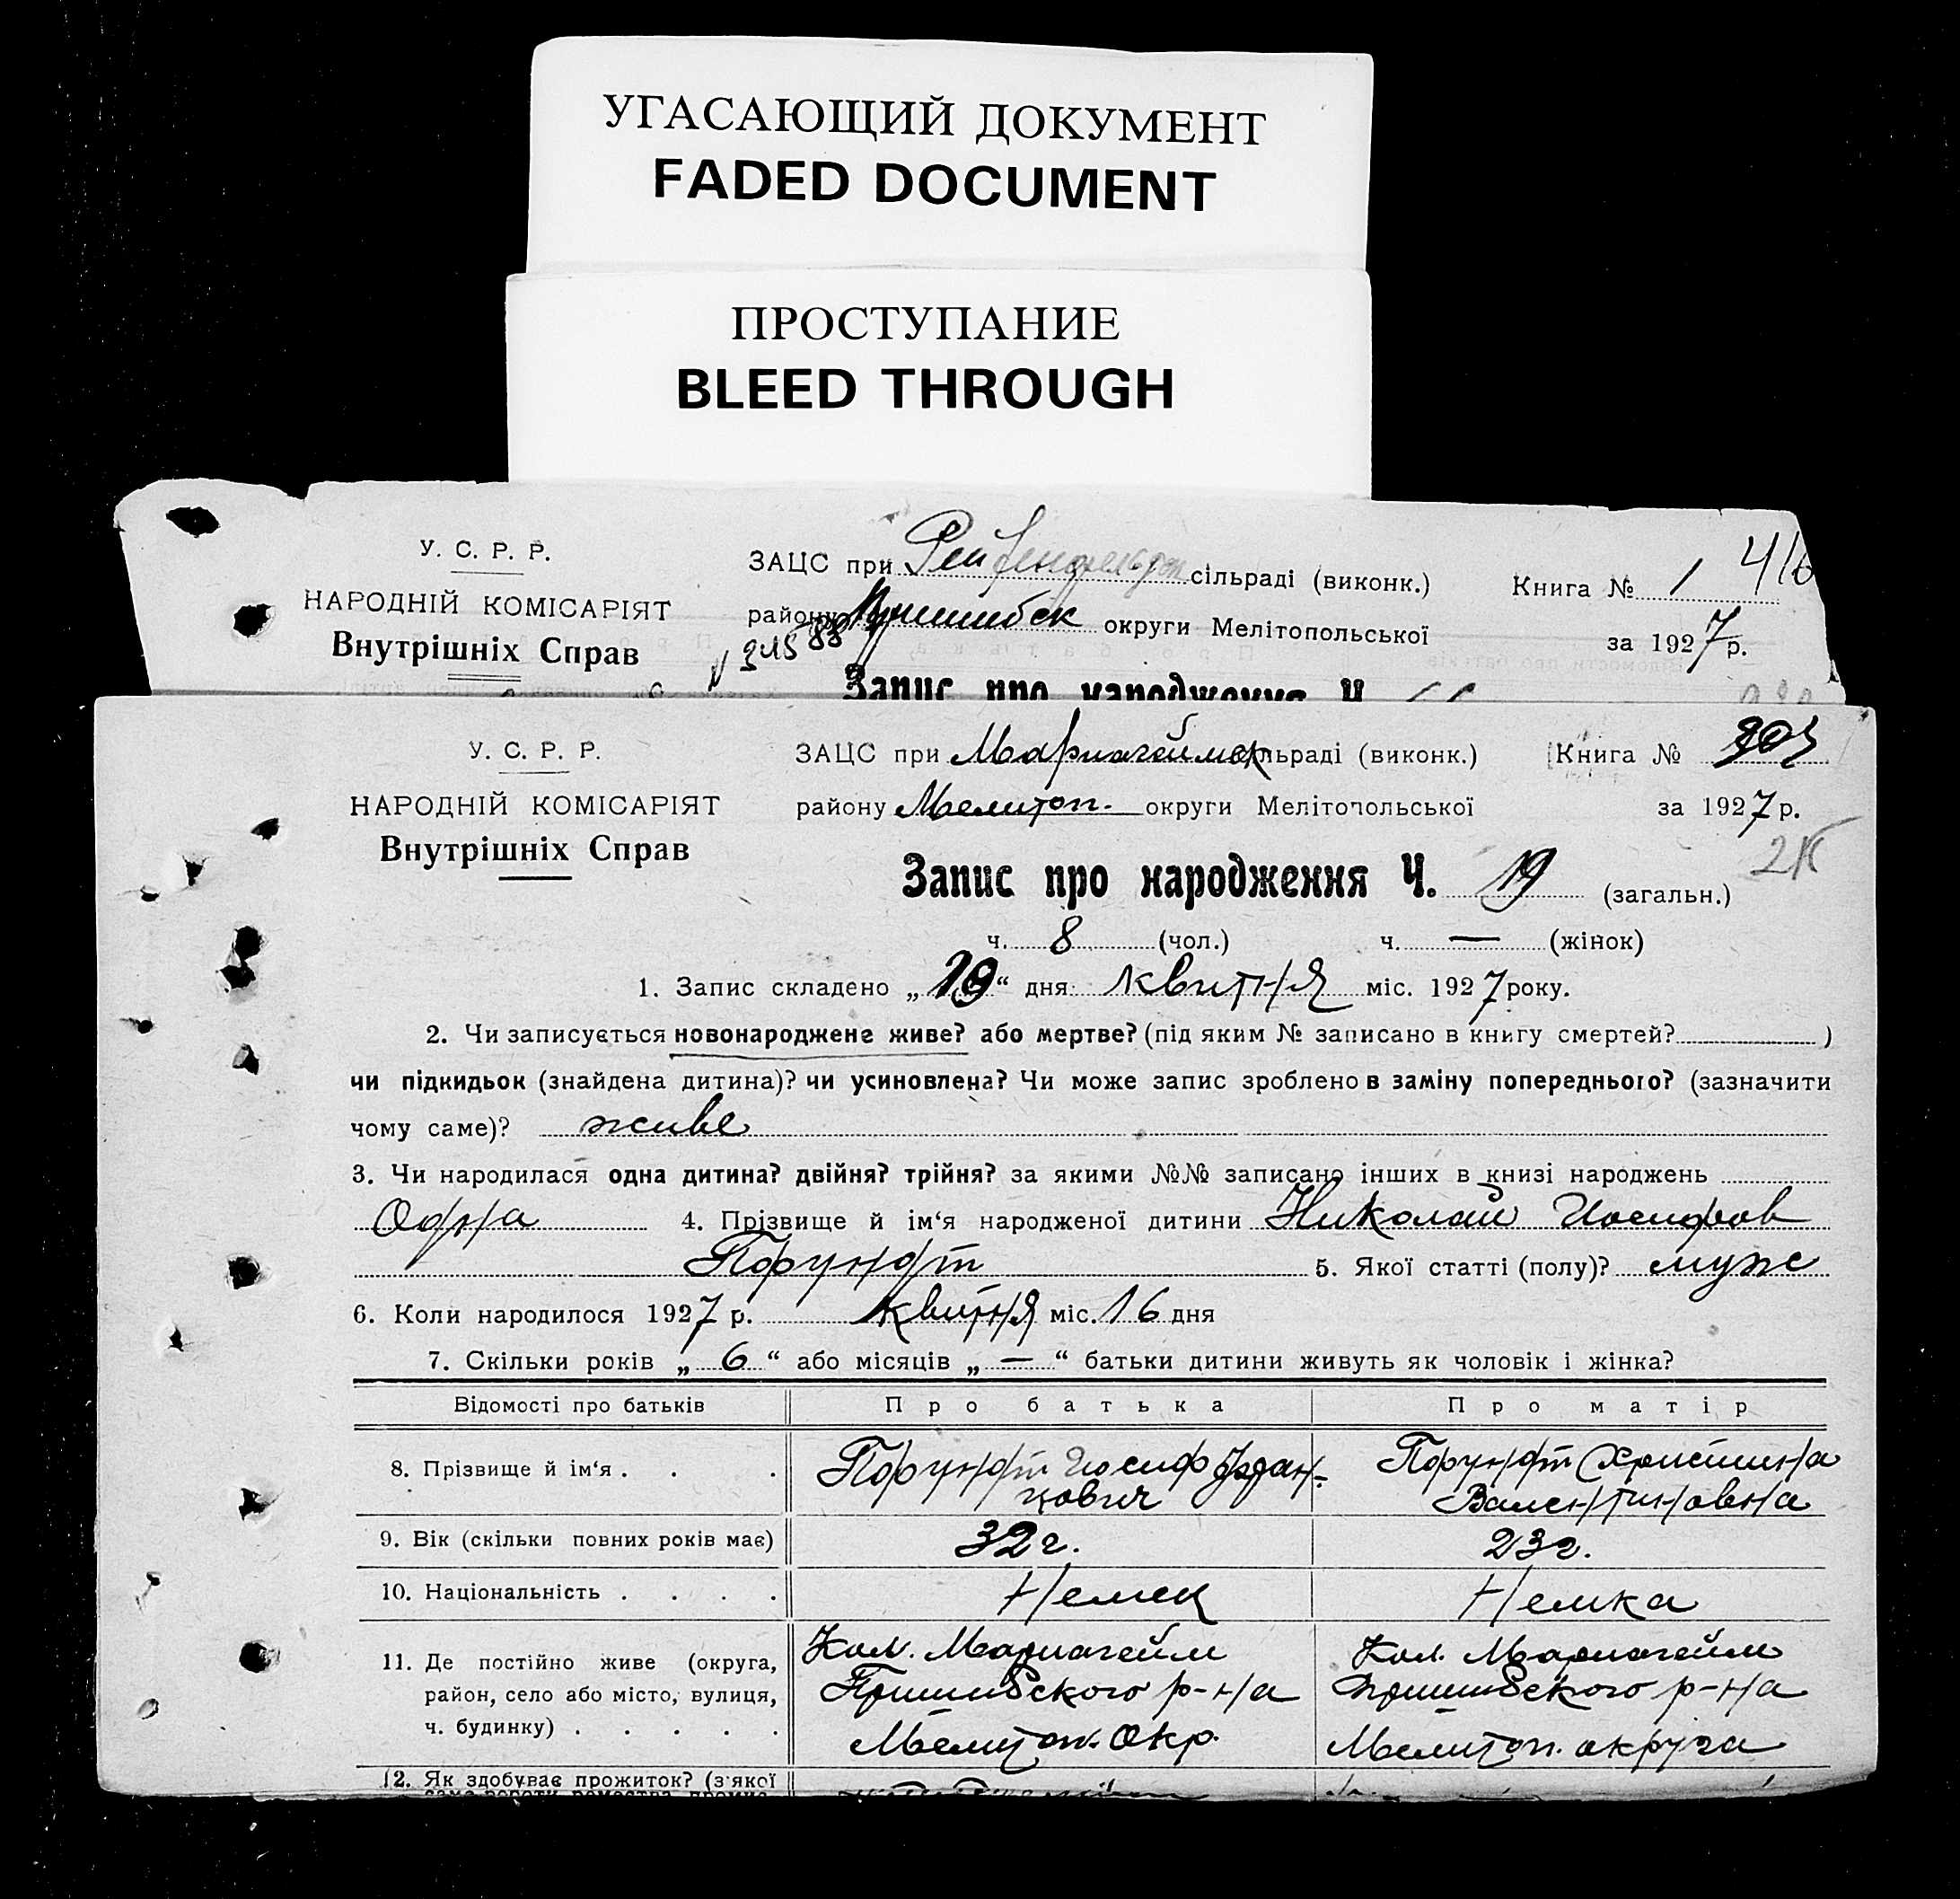 УГАСАЮЩИЙ ДОКУМЕНТ
FADED DOCUMENT
ПРОСТУПАНИЕ
BLEED THROUGH
У. С. Р. Р.
НАРОДНІЙ КОМІСАРІЯТ
Внутрішніх Справ
ЗАЦС при сільраді (виконк.) Книга № 1 416
району Пришибск округи Мелітопольської за 1927 р.
Запис про народження Ч.
У. С. Р. Р.
НАРОДНІЙ КОМІСАРІЯТ
Внутрішніх Справ
ЗАЦС при Мариагеймск сільраді (виконк.) Книга №
району Мелитоп. округи Мелітопольської за 1927 р.
Запис про народження Ч. 19 (загальн.)
ч. 8 (чол.) ч. — (жінок)
1. Запис складено „19“ дня квитня міс. 1927 року.
2. Чи записується новонароджене живе? або мертве? (під яким № записано в книгу смертей? )
чи підкидьок (знайдена дитина)? чи усиновлена? Чи може запис зроблено в заміну попереднього? (зазначити
чому саме)? живе
3. Чи народилася одна дитина? двійня? трійня? за якими №№ записано інших в книзі народжень
Одна 4. Прізвище й ім‘я народженої дитини Николай Иосифов
Порундт 5. Якої статті (полу)? муж
6. Коли народилося 1927 р. квитня міс. 16 дня
7. Скільки років „ 6 “ або місяців „ — “ батьки дитини живуть як чоловік і жінка?
Відомості про батьків Про батька Про матір
8. Прізвище й ім‘я . . . Порундт Иосиф Фран-
цович
Порундт Христина
Валентиновна
9. Вік (скільки повних років має) 32 г. 23 г.
10. Національність . . . . Немец Немка
11. Де постійно живе (округа,
район, село або місто, вулиця,
ч. будинку) . . . . .
Кол. Мариагейм
Пришибского р-на
Мелитоп. Окр.
Кол. Мариагейм
Пришибского р-на
Мелитоп. округа
12. Як здобуває прожиток? (з якої